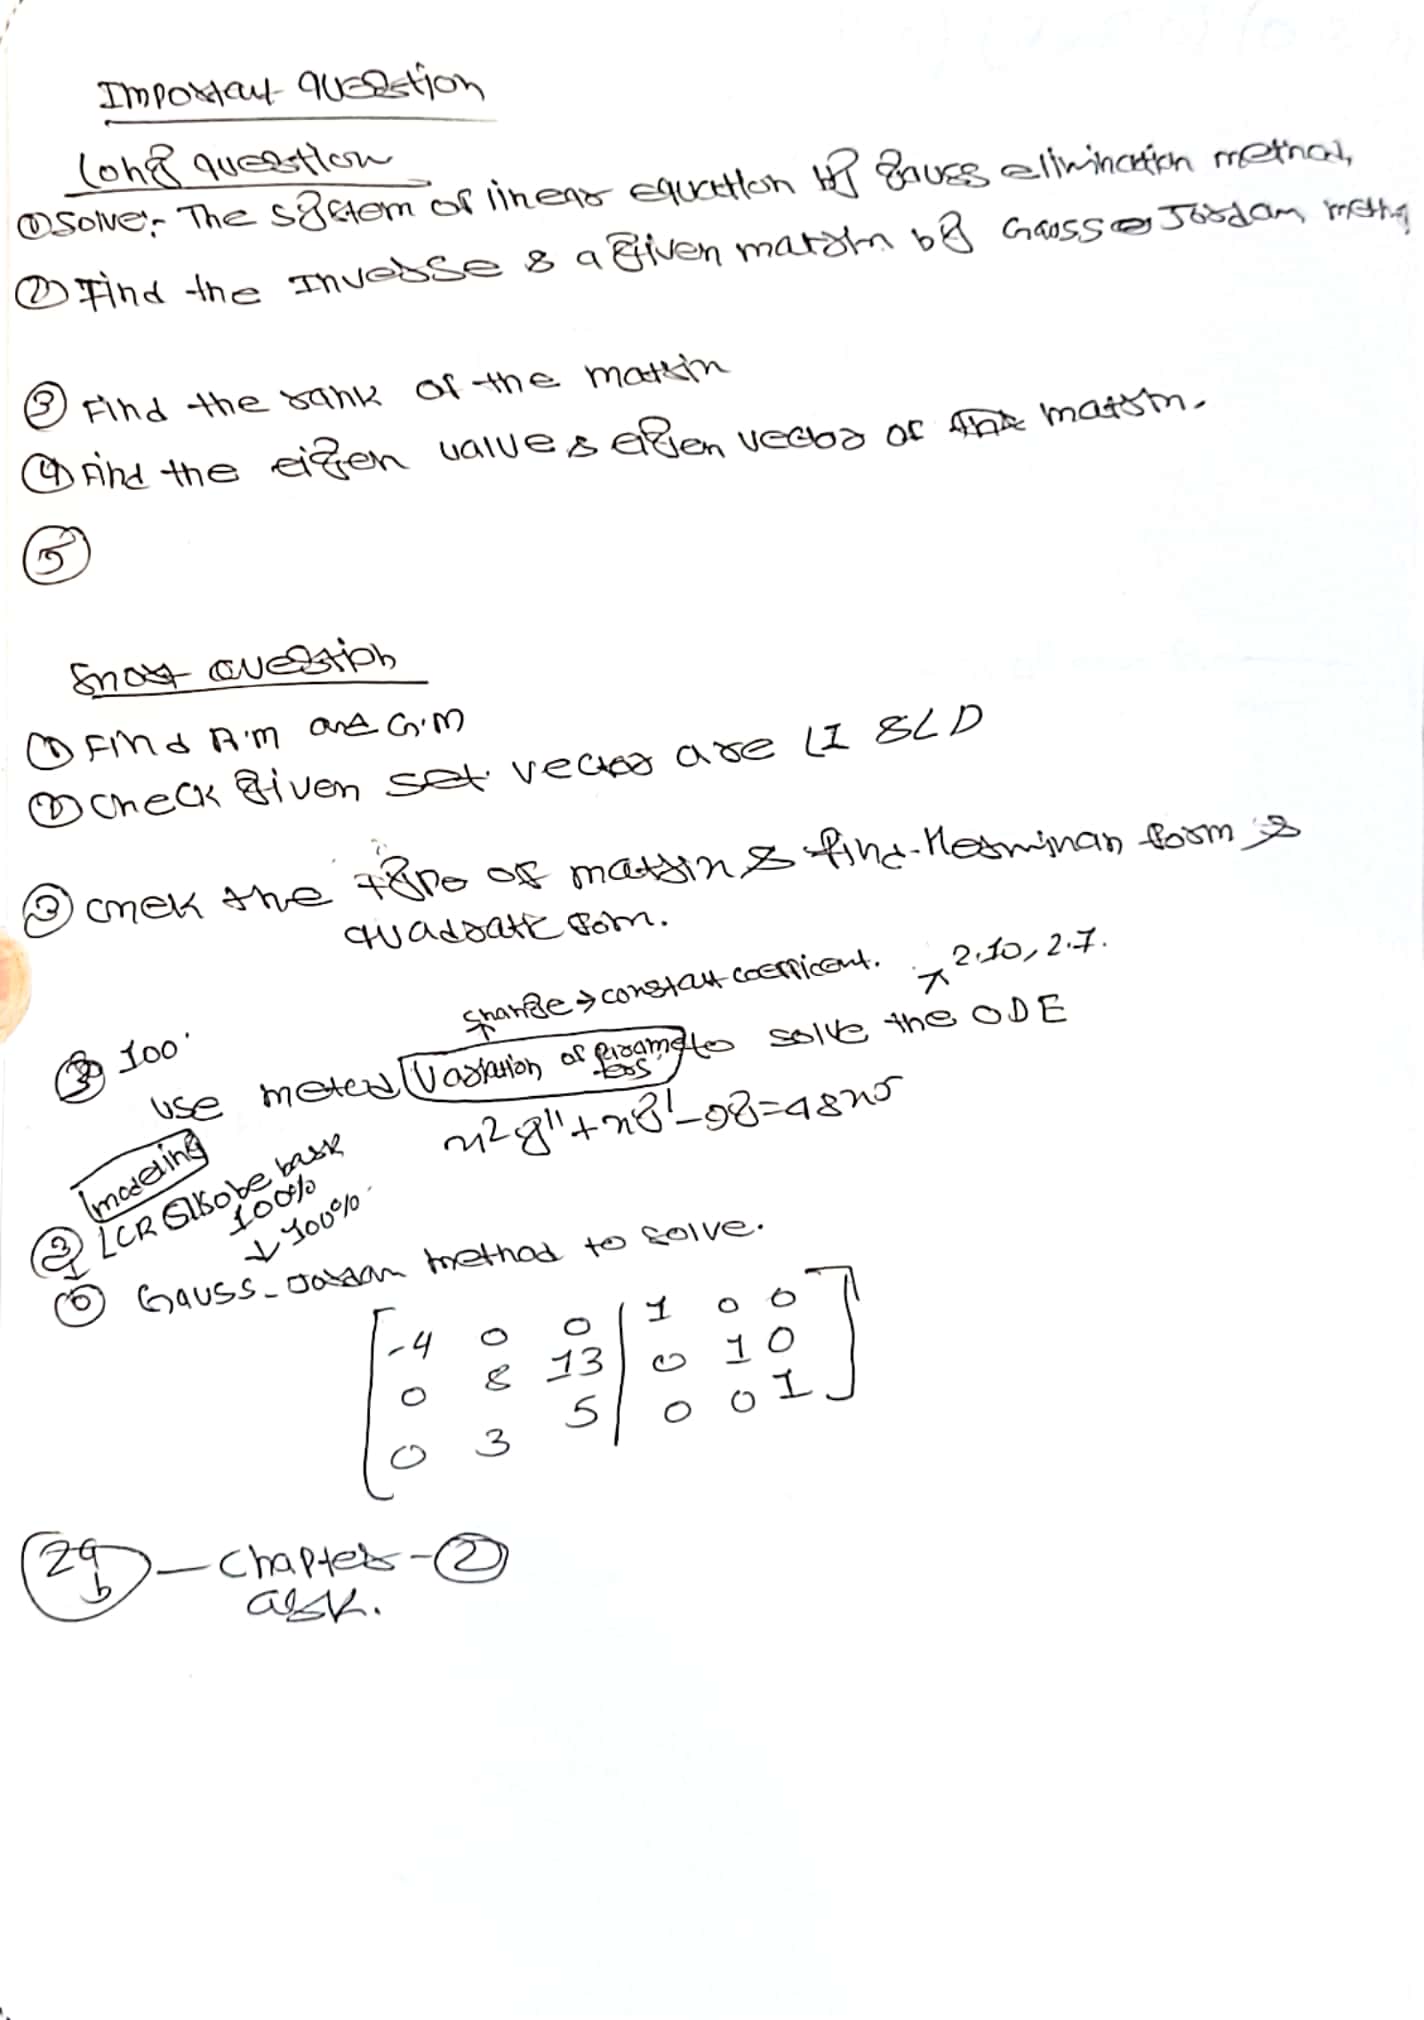 Important question
Long question
① Solve:- The system of linear equation by Gauss elimination method,
② Find the Inverse & a given matrix by Gauss Jordan metho
③ Find the rank of the matrix
④ Find the eigen value & eigen vector of the matrix.
⑤
Short question
① Find A.M and G.M
② Check given set vector are LI & LD
③ Chek the type of matrix & find Herminan form &
quadratic form.
change → constant coefficent. 2.10, 2.7.
③ 100.
use metod Variation of parameters to solve the ODE
x²y''+xy'-9y=48x⁵
modeling
② LCR also be bask
100%
↓ 100%
⑥ Gauss-Jordan method to solve.
-4 0 0 | 1 0 0
0 8 13 | 0 1 0
0 3 5 | 0 0 1
2a b — Chapter - ②
ask.